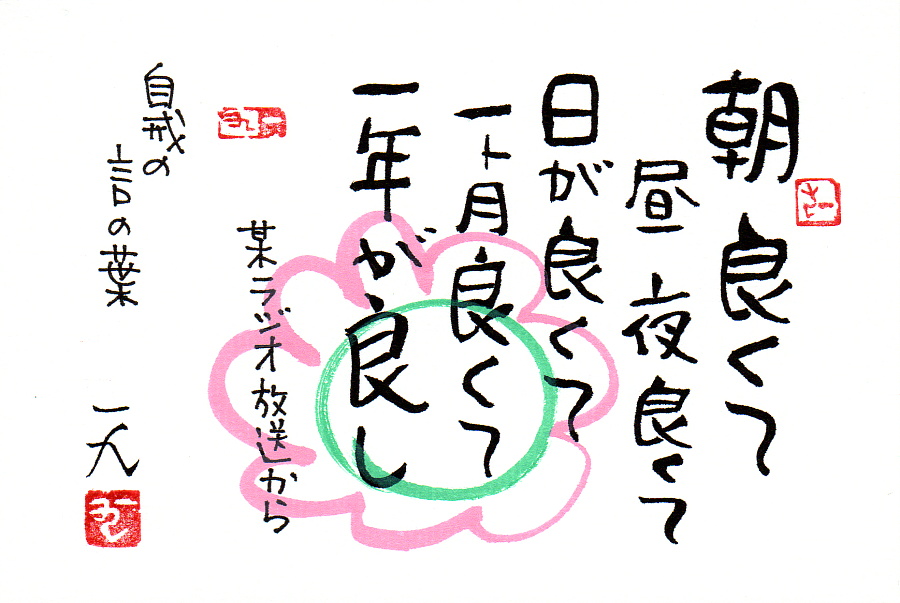 朝良くて
昼夜良くて
日が良くて
一ト月良くて
一年が良し
某ラジオ放送から
自戒の
言の葉
一九